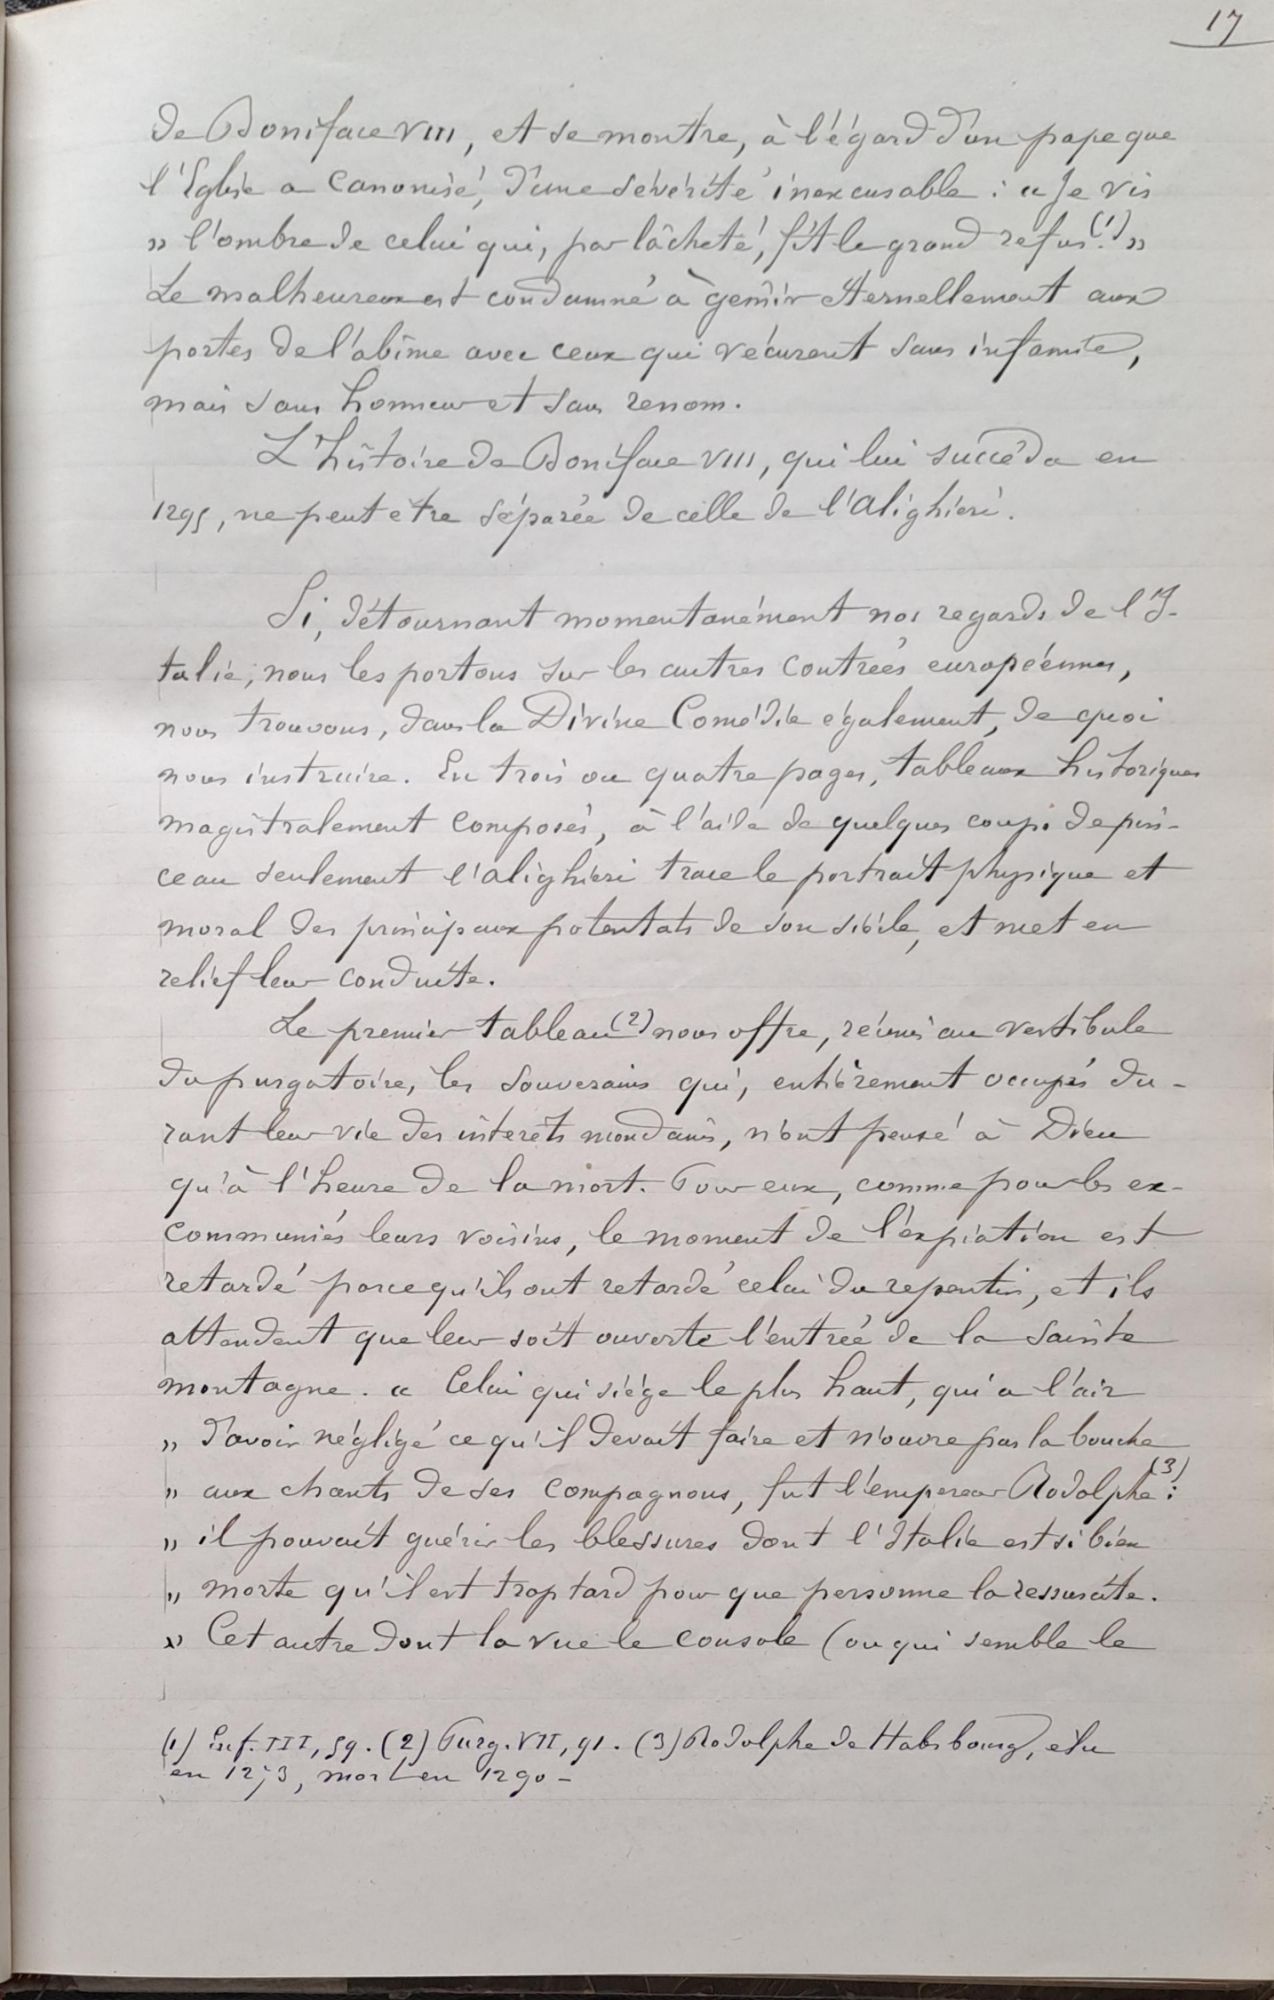 17
de Boniface VIII, et se montre, à l'égard d'un pape que
l'Eglise a canonisé, d'une sévérité inexcusable : « Je vis
» l'ombre de celui qui, par lâcheté, fit le grand refus (1). »
Le malheureux est condamné à gémir éternellement aux
portes de l'abîme avec ceux qui vécurent sans infamie,
mais sans honneur et sans renom.
L'histoire de Boniface VIII, qui lui succéda en
1295, ne peut être séparée de celle de l'Alighieri.
Si, détournant momentanément nos regards de l'I-
talie, nous les portons sur les autres contrées européennes,
nous trouvons, dans la Divine Comédie également, de quoi
nous instruire. En trois ou quatre pages, tableaux historiques
magistralement composés, à l'aide de quelques coups de pin-
ceau seulement l'Alighieri trace le portrait physique et
moral des principaux potentats de son siècle, et met en
relief leur conduite.
Le premier tableau (2) nous offre, réunis au vestibule
du purgatoire, les souverains qui, entièrement occupés du-
rant leur vie des intérêts mondains, n'ont pensé à Dieu
qu'à l'heure de la mort. Pour eux, comme pour les ex-
communiés leurs voisins, le moment de l'expiation est
retardé parce qu'ils ont retardé celui du repentir, et ils
attendent que leur soit ouverte l'entrée de la sainte
montagne. « Celui qui siége le plus haut, qui a l'air
» d'avoir négligé ce qu'il devait faire et n'ouvre pas la bouche
» aux chants de ses compagnons, fut l'empereur Rodolphe (3) :
» il pouvait guérir les blessures dont l'Italie est si bien
» morte qu'il est trop tard pour que personne la ressuscite.
» Cet autre dont la vue le console (ou qui semble le
(1) Inf. III, 59. (2) Purg. VII, 91. (3) Rodolphe de Habsbourg, élu
en 1273, mort en 1290 -